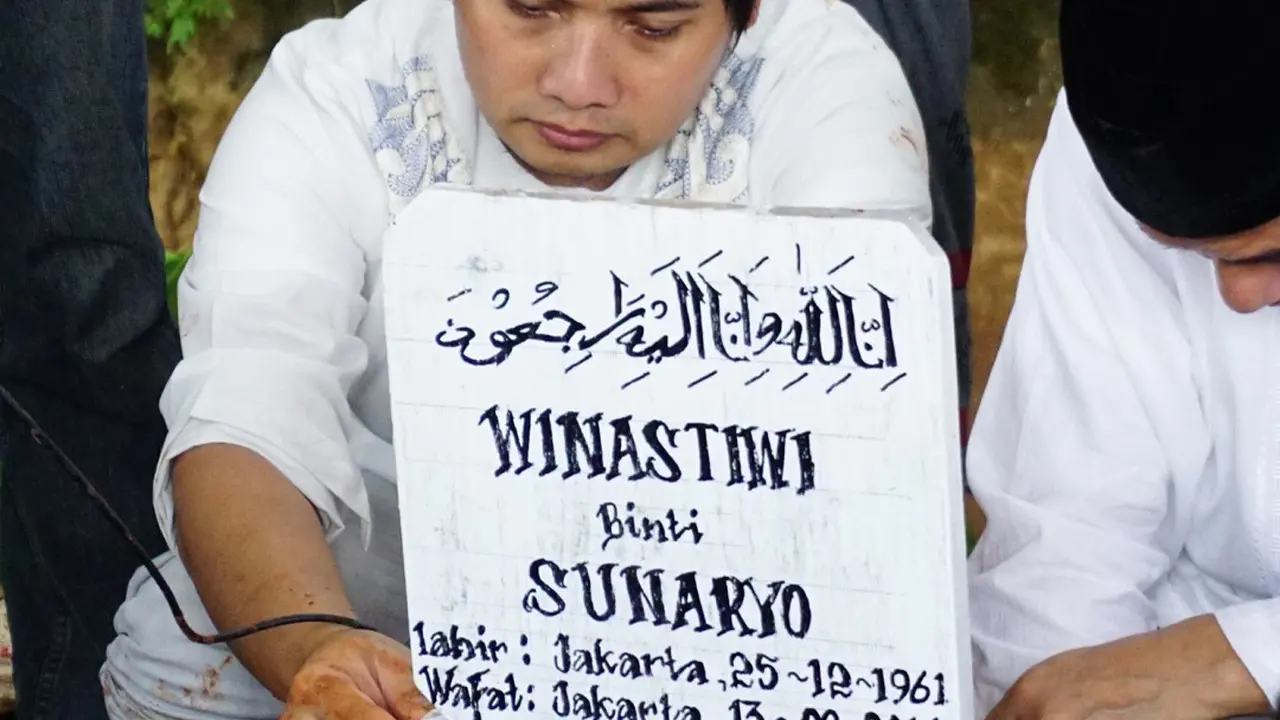 اِنَّا لِلّٰهِ وَاِنَّا اِلَيْهِ رَاجِعُوْنَ
WINASTIWI
Binti
SUNARYO
lahir : Jakarta, 25-12-1961
Wafat : Jakarta